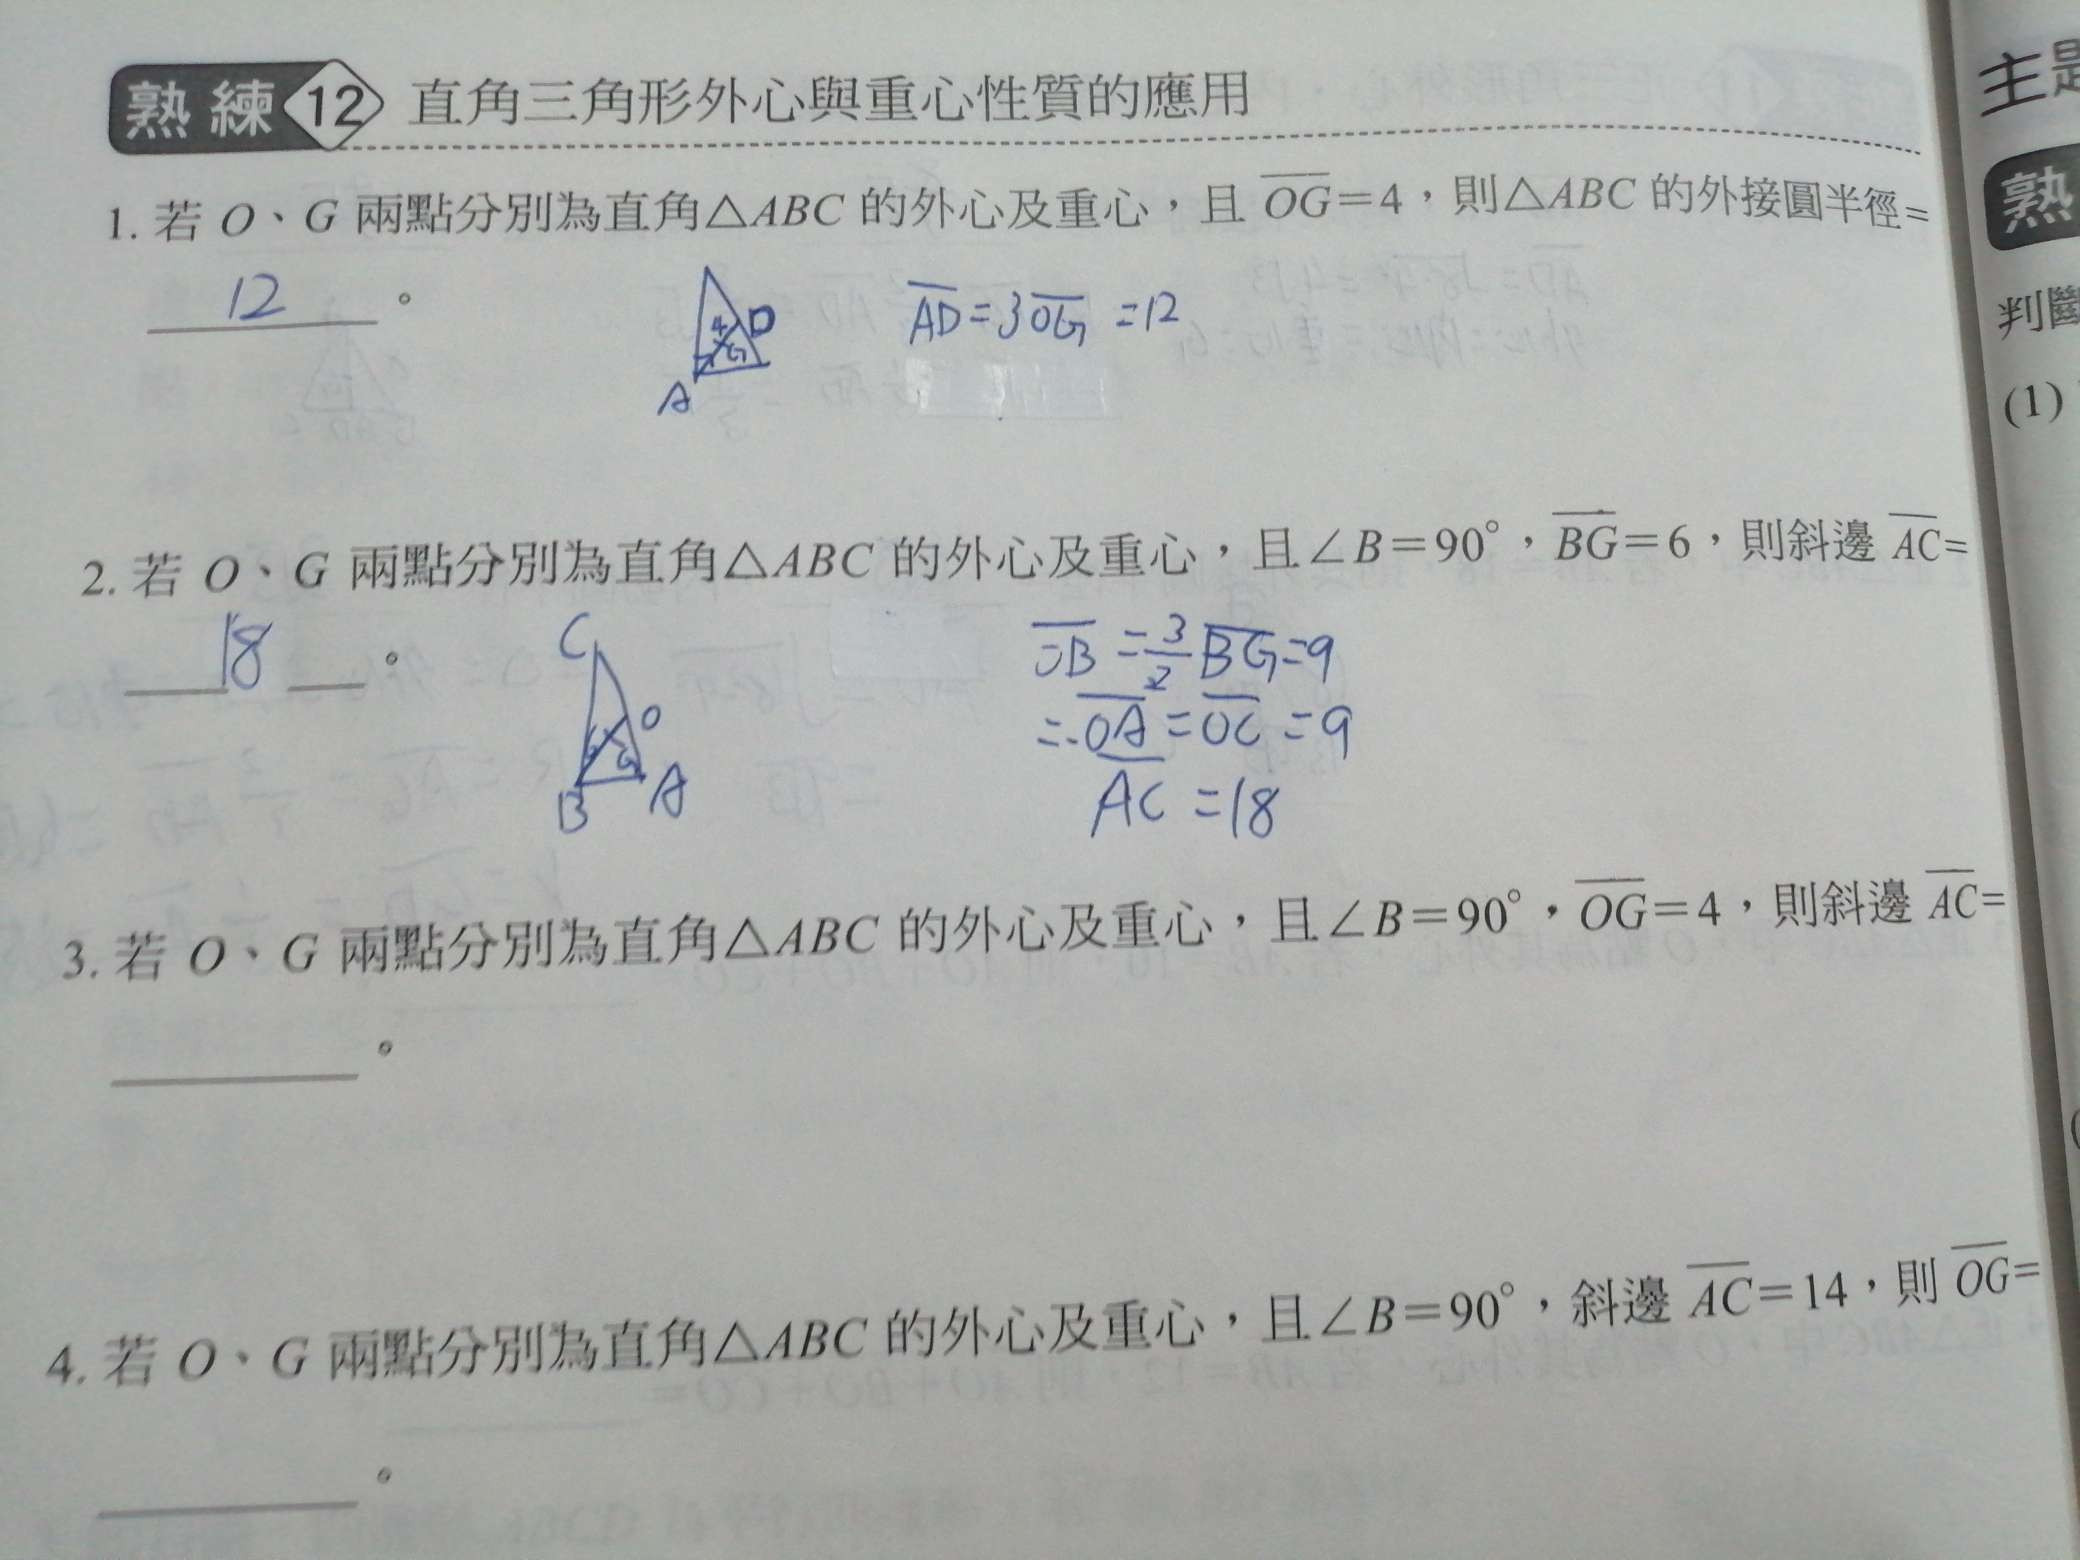 熟練 12 直角三角形外心與重心性質的應用
1. 若 O、G 兩點分別為直角△ABC 的外心及重心，且 \overline{OG}=4，則△ABC 的外接圓半徑=
12 。
4 D
G
A
\overline{AD}=3\overline{OG}=12
2. 若 O、G 兩點分別為直角△ABC 的外心及重心，且∠B=90°，\overline{BG}=6，則斜邊 \overline{AC}=
18 。
C
O
G
B A
\overline{OB}=\frac{3}{2}\overline{BG}=9
=\overline{OA}=\overline{OC}=9
\overline{AC}=18
3. 若 O、G 兩點分別為直角△ABC 的外心及重心，且∠B=90°，\overline{OG}=4，則斜邊 \overline{AC}=
。
4. 若 O、G 兩點分別為直角△ABC 的外心及重心，且∠B=90°，斜邊 \overline{AC}=14，則 \overline{OG}=
。
主題
熟
判斷
(1)